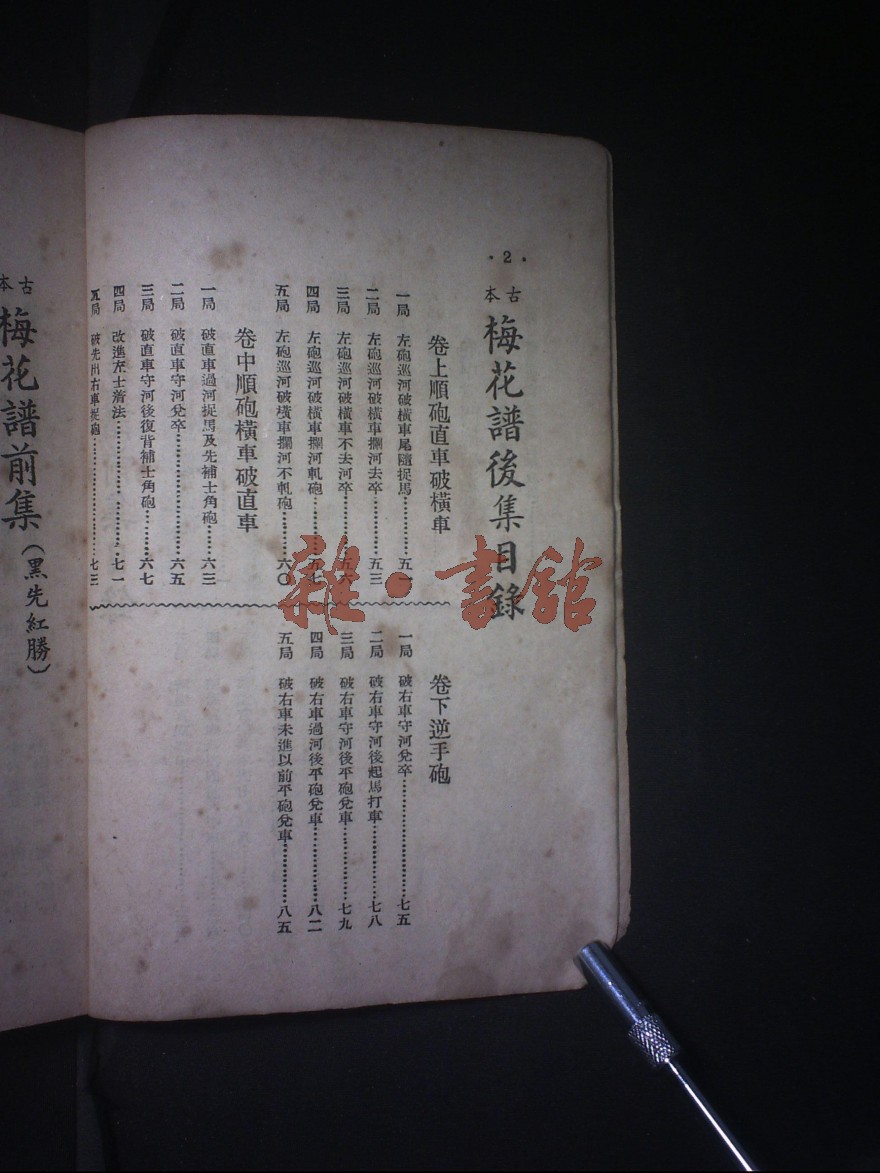 ·2·
古本
梅花譜後集目錄
卷上順砲直車破橫車
一局 左砲巡河破橫車尾隨捉馬…………五一
二局 左砲巡河破橫車攔河去卒…………五三
三局 左砲巡河破橫車不去河卒…………五六
四局 左砲巡河破橫車攔河軋砲…………五七
五局 左砲巡河破橫車攔河不軋砲………六〇
卷中順砲橫車破直車
一局 破直車過河捉馬及先補士角砲……六三
二局 破直車守河兌卒……………………六五
三局 破直車守河後復背補士角砲………六七
四局 改進左士着法………………………七一
五局 破先出右車捉砲……………………七三
卷下逆手砲
一局 破右車守河兌卒……………………七五
二局 破右車守河後起馬打車……………七八
三局 破右車守河後平砲兌車……………七九
四局 破右車過河後平砲兌車……………八二
五局 破右車未進以前平砲兌車…………八五
古本
梅花譜前集(黑先紅勝)
雜·書館